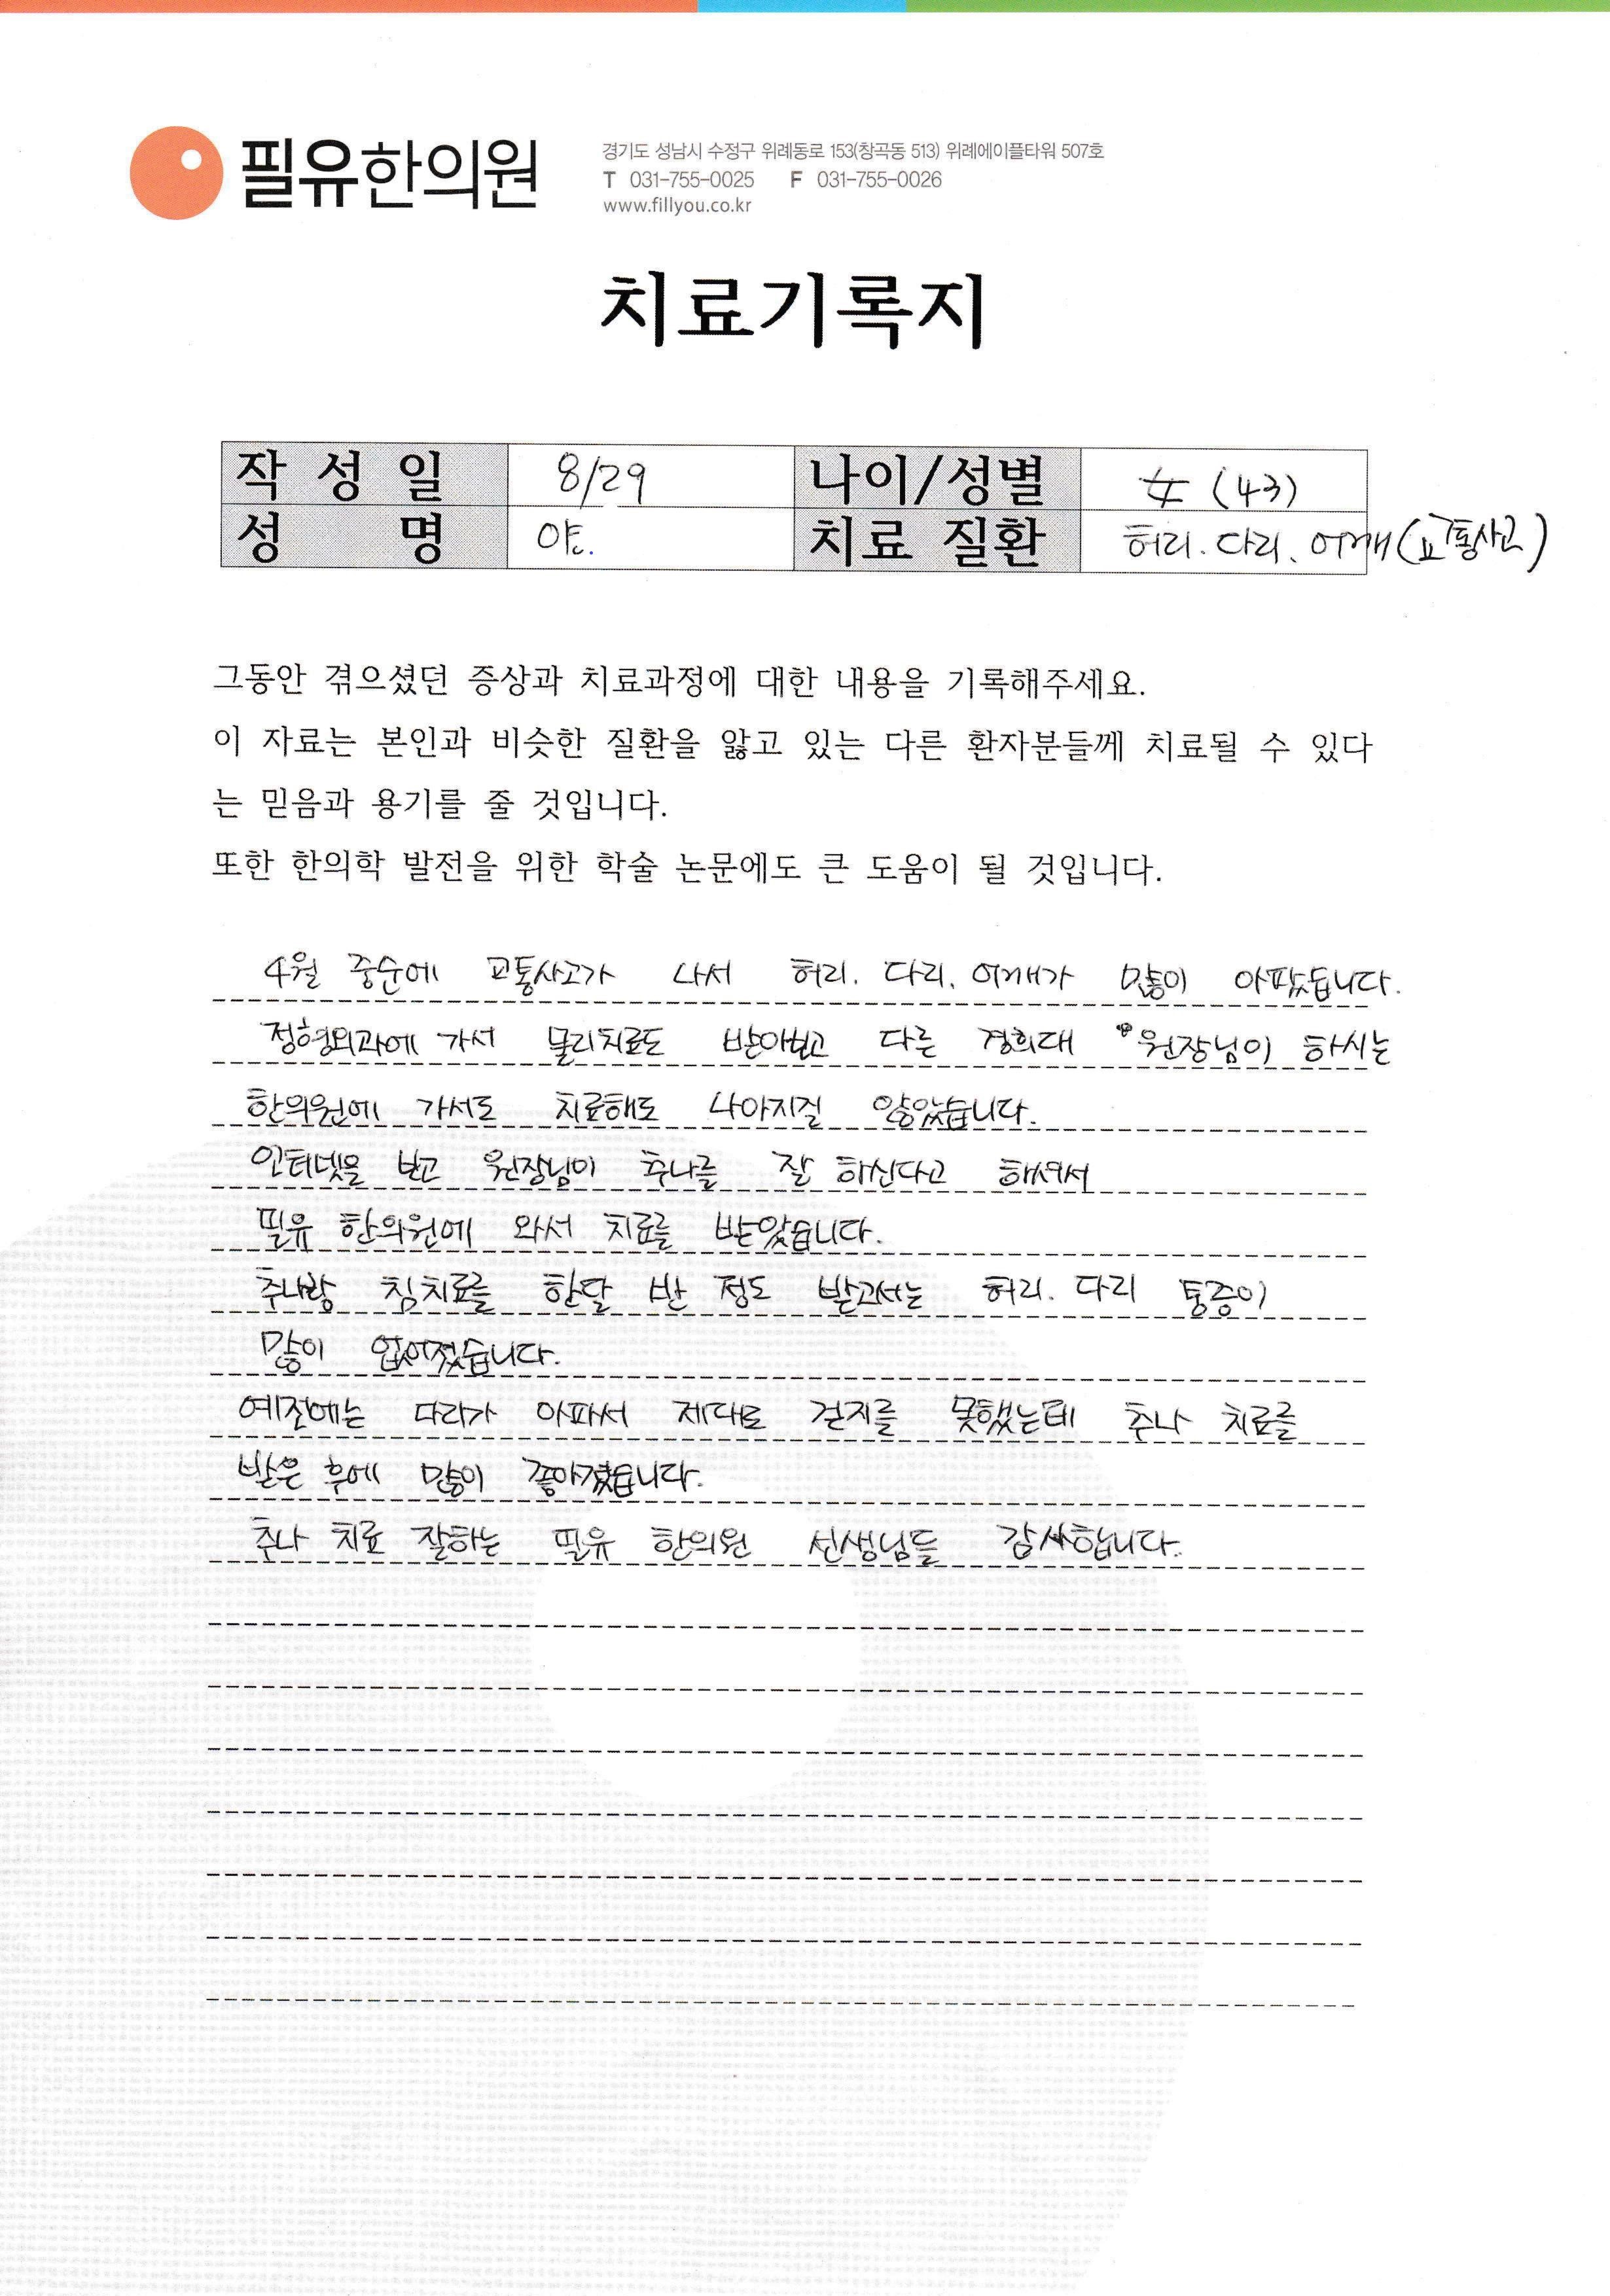 필유한의원
경기도 성남시 수정구 위례동로 153(창곡동 513) 위례에이플타워 507호
T 031-755-0025 F 031-755-0026
www.fillyou.co.kr
치료기록지
작 성 일 8/29 나이/성별 女 (43)
성 명 치료 질환 허리. 다리. 어깨 (교통사고)
그동안 겪으셨던 증상과 치료과정에 대한 내용을 기록해주세요.
이 자료는 본인과 비슷한 질환을 앓고 있는 다른 환자분들께 치료될 수 있다
는 믿음과 용기를 줄 것입니다.
또한 한의학 발전을 위한 학술 논문에도 큰 도움이 될 것입니다.
4월 중순에 교통사고가 나서 허리. 다리. 어깨가 많이 아팠습니다.
정형외과에 가서 물리치료도 받아보고 다른 경희대 원장님이 하시는
한의원에 가서도 치료해도 나아지질 않았습니다.
인터넷을 보고 원장님이 추나를 잘 하신다고 해서
필유 한의원에 와서 치료를 받았습니다.
추나랑 침치료를 한달 반 정도 받고서는 허리. 다리 통증이
많이 없어졌습니다.
예전에는 다리가 아파서 제대로 걷지를 못했는데 추나 치료를
받은 후에 많이 좋아졌습니다.
추나 치료 잘하는 필유 한의원 선생님들 감사합니다.